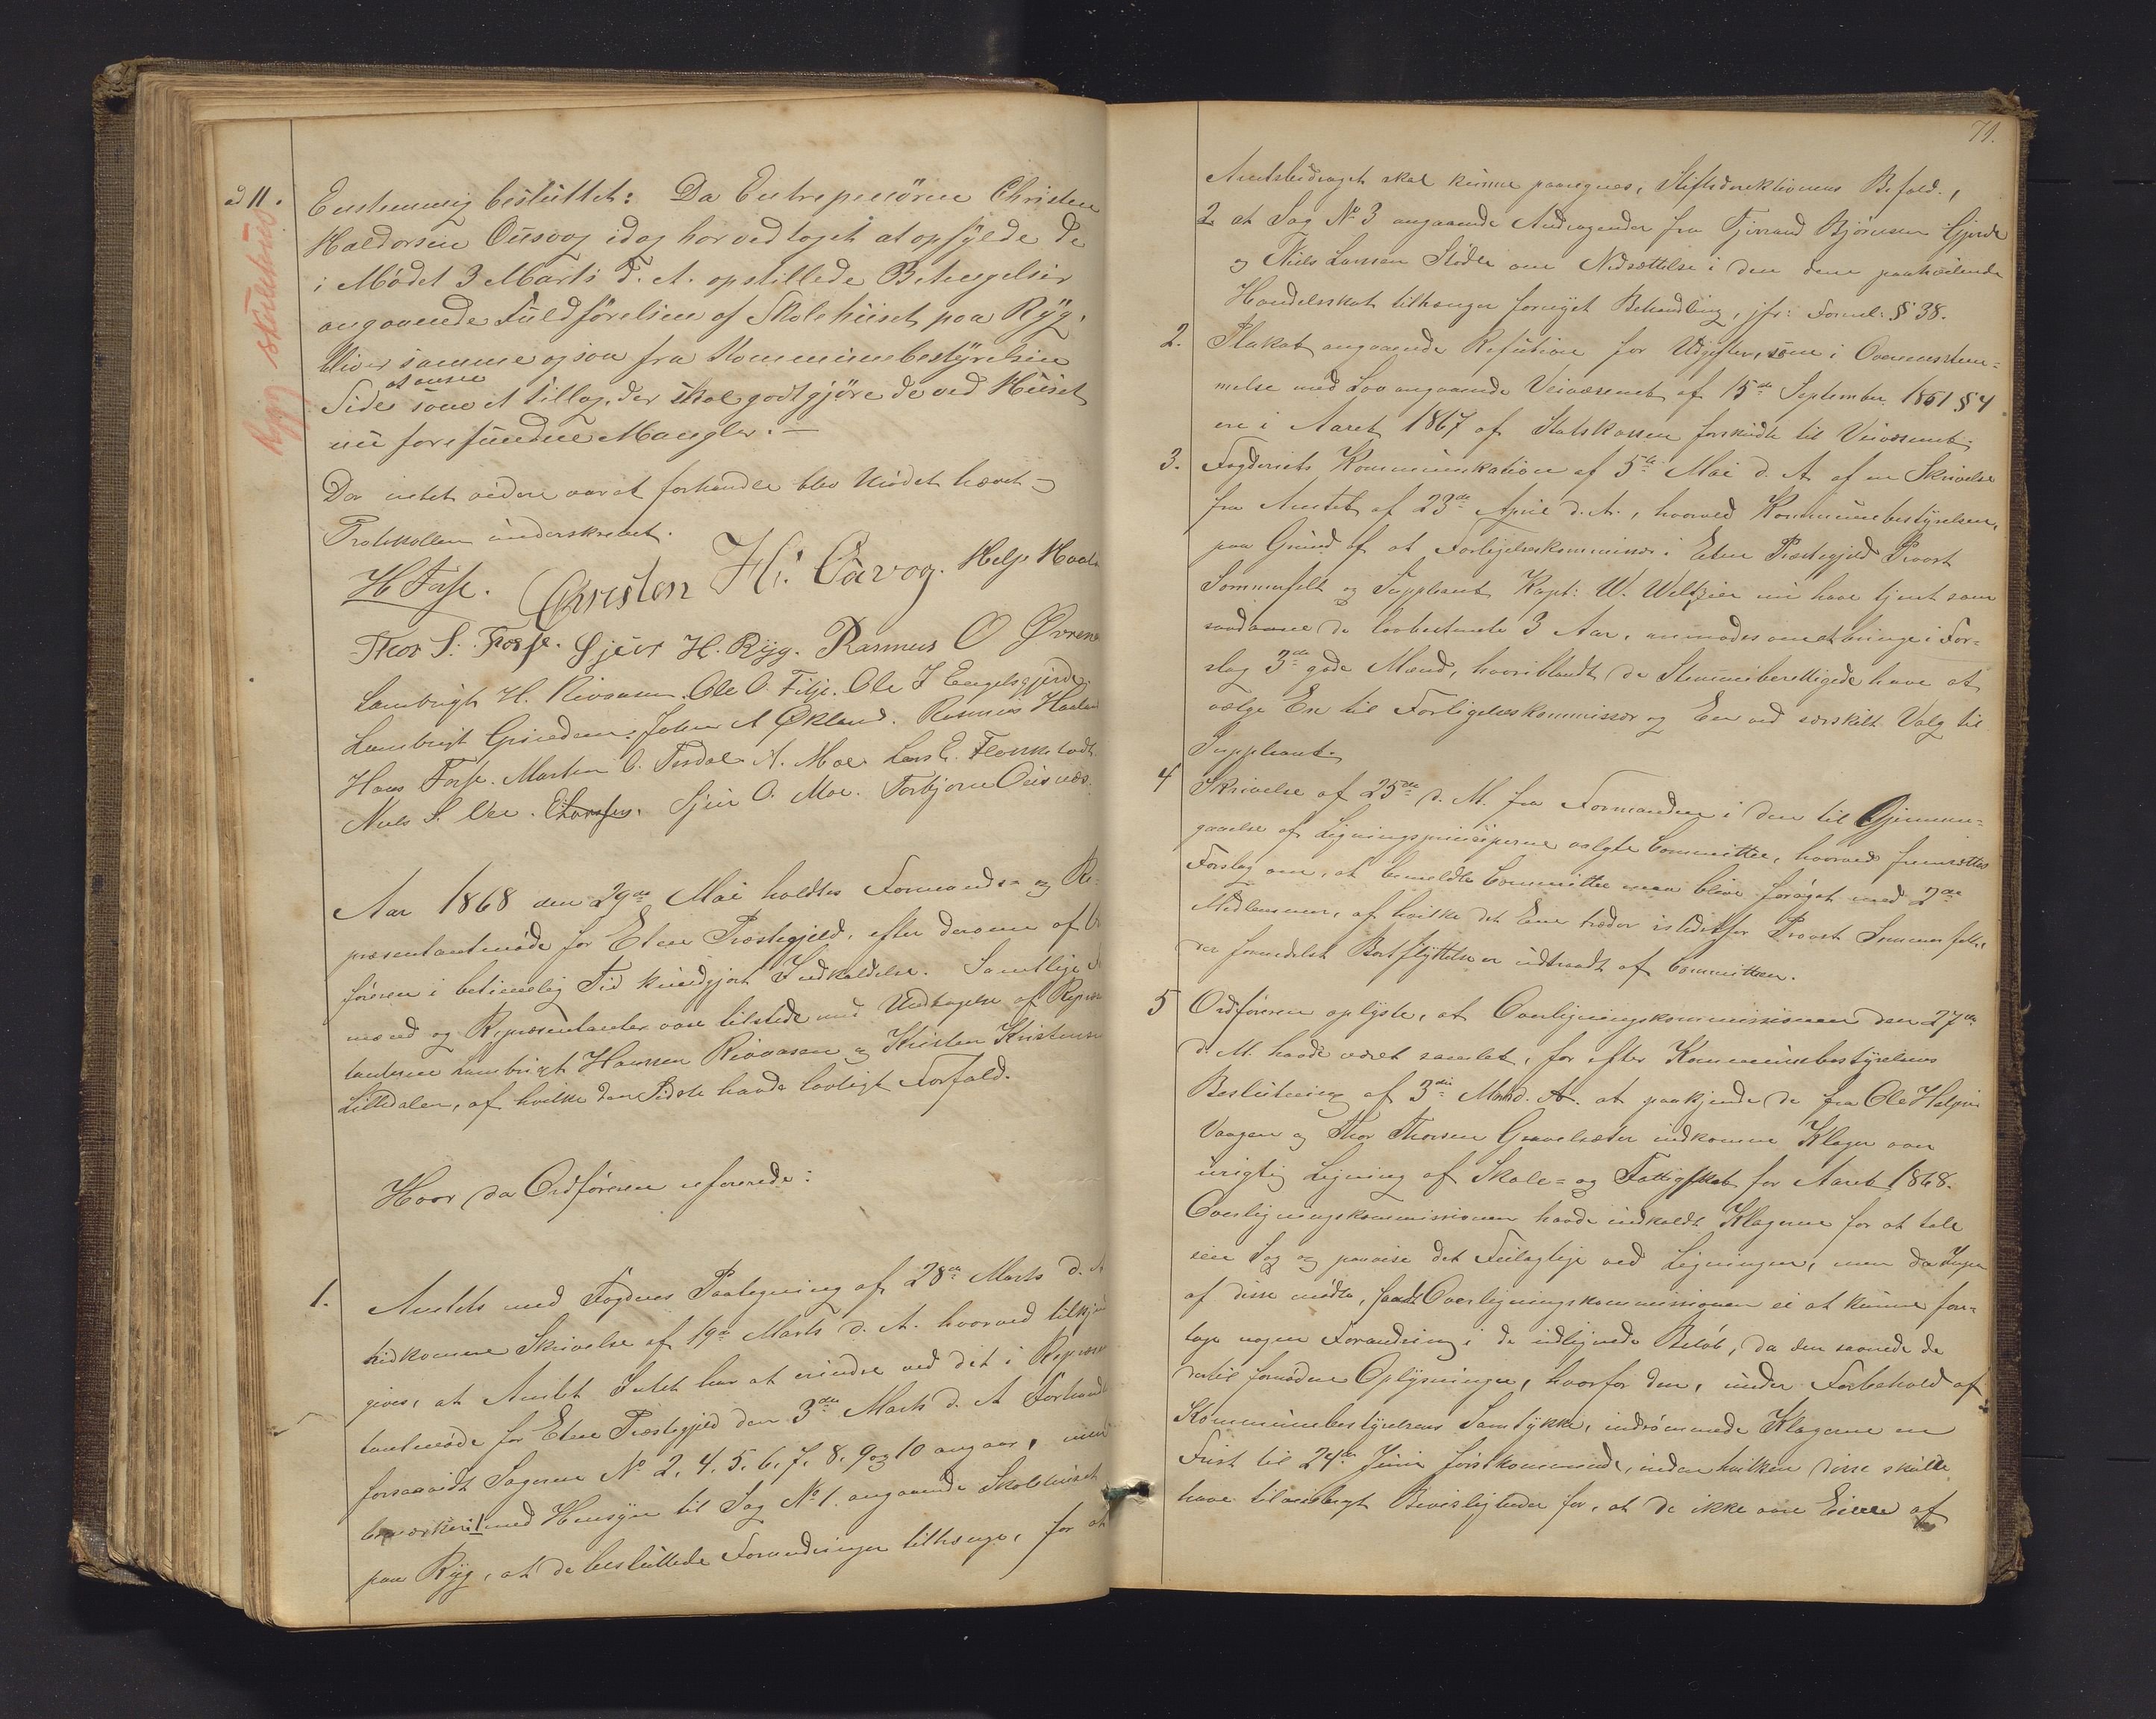 ad 11.
Enstemmig besluttet: Da Entreprenøren Christen
Haldorsen Ousvog idag har vedtaget at opfylde de
i Mødet 3 Marts d. A. opstillede Betingelser
angaaende Fuldførelsen af Skolehuset paa Ryg,
bliver samme ogsaa fra Kommunebestyrelsen
Side at ansee som et tillæg, der skal godtgjøre de ved Huset
nu forefundne Mangler. —
Rygg skulehus
Da intet videre var at forhandle blev Mødet hævet —
Protokollen underskrevet.
H Forse. Christen H. Øavog. Helje Haaln
Thor S. Forse. Sjur H. Ryg. Rasmus O Øvren
Lambrigt H. Rivenæsen. Ole O. Fitje. Ole J Engelsgjerde.
Lambrigt Grinden. Johan A Økland. Rasmus Haaland
Hans Forse. Marten O. Tesdal. A. Moe. Lars E. Flornestadt.
Niels S. Vee. Sjur O. Moe. Torbjorn Ousnæs.
Aar 1868 den 29de Mai holdtes Formands- og Re-
præsentantmøde for Etne Præstegjeld, efter derom af Or
føreren i betimelig Tid kundgjort Indkaldelse. Samtlige
mænd og Repræsentanter vare tilstede med Undtagelse af Repræs
tanterne Lambrigt Hansen Rivenæsen og Kristen Kristensen
Litledalen, af hvilke den Sidste havde lovligt Forfald.
Hvor da Ordføreren refererede:
1.
Amtets med Fogdens Paategning af 28de Marts d. A
hidkomne Skrivelse af 19de Marts d. A. hvorved tilkjende
gives, at Amtet Intet har at erindre ved det i Repræsen
tantmøde for Etne Præstegjeld den 3die Marts d. A Forhandl
forsaavidt Sagerne No 2. 4. 5. 6. 7. 8. 9 og 10 angaar, men
bemærker: 1 med Hensyn til Sag No 1. angaaende Skolehuset
paa Ryg, at de besluttede Forandringer tilhænge, for at
71.
Amtsbidraget skal kunne paaregnes, Stiftsdirektionens Befald.,
2 at Sag No 3 angaaende Andragender fra Tjerrand Bjørnsen Gjerde
og Niels Larsen Stødle om Nedsættelse i den dem paahvilende
Handelsskat tilhænger fornyet Behandling, jfr: Forml: § 38.
2.
Plakat angaaende Refution for Udgifter, som i Overensstem-
melse med Lov angaaende Veivæsenet af 15de September 1851 § 4
ere i Aaret 1867 af Statskassen forskudte til Veivæsenet.
3.
Fogderiets Kommunikation af 5te Mai d. A af en Skrivelse
fra Amtet af 23de April d. A., hvorved Kommunebestyrelsen,
paa Grund af at Forligelseskommissær i Etne Præstegjeld Provst
Sommerfelt og Suppleant Kapt: W. Weltzien nu have tjent som
saadanne de lovbestemte 3 Aar, anmodes om at bringe i For-
slag 3de gode Mænd, hvoriblandt de Stemmeberettigede have at
vælge En til Forligelseskommissær og En ved særskilt Valg til
Suppleant.
4
Skrivelse af 25de d. M. fra Formanden i den til Gjennem-
gaaelse af Ligningsprinciperne valgte Committee, hvorved fremsættes
Forslag om, at bemeldte Committee maa blive forøget med 2de
Medlemmer, af hvilke det Ene træder istedetfor Provst Sommerfelt,
der formedelst Bortflyttelse er udtraadt af Committeen.
5
Ordføreren oplyste, at Overligningskommissionen den 27de
d. M. havde været samlet, for efter Kommunebestyrelsens
Beslutning af 3die Marts d. A. at paakjende de fra Ole Helgesen
Vaagen og Thor Thorsen Gravelsæter indkomne Klager over
urigtig Ligning af Skole- og Fattigskat for Aaret 1868.
Overligningskommissionen havde indkaldt Klagerne for at tale
sin Sag og paavise det Feilagtige ved Ligningen, men da Ingen
af disse mødte, fandt Overligningskommissionen ei at kunne fore-
tage nogen Forandring i de udlignede Beløb, da den savnede de
dertil fornødne Oplysninger, hvorfor den, under Forbehold af
Kommunebestyrelsens Samtykke, indrømmede Klagerne en
Frist til 24de Juni førstkommende, inden hvilken disse skulle
have tilveiebragt Bevisligheder for, at de ikke vare Eiere af